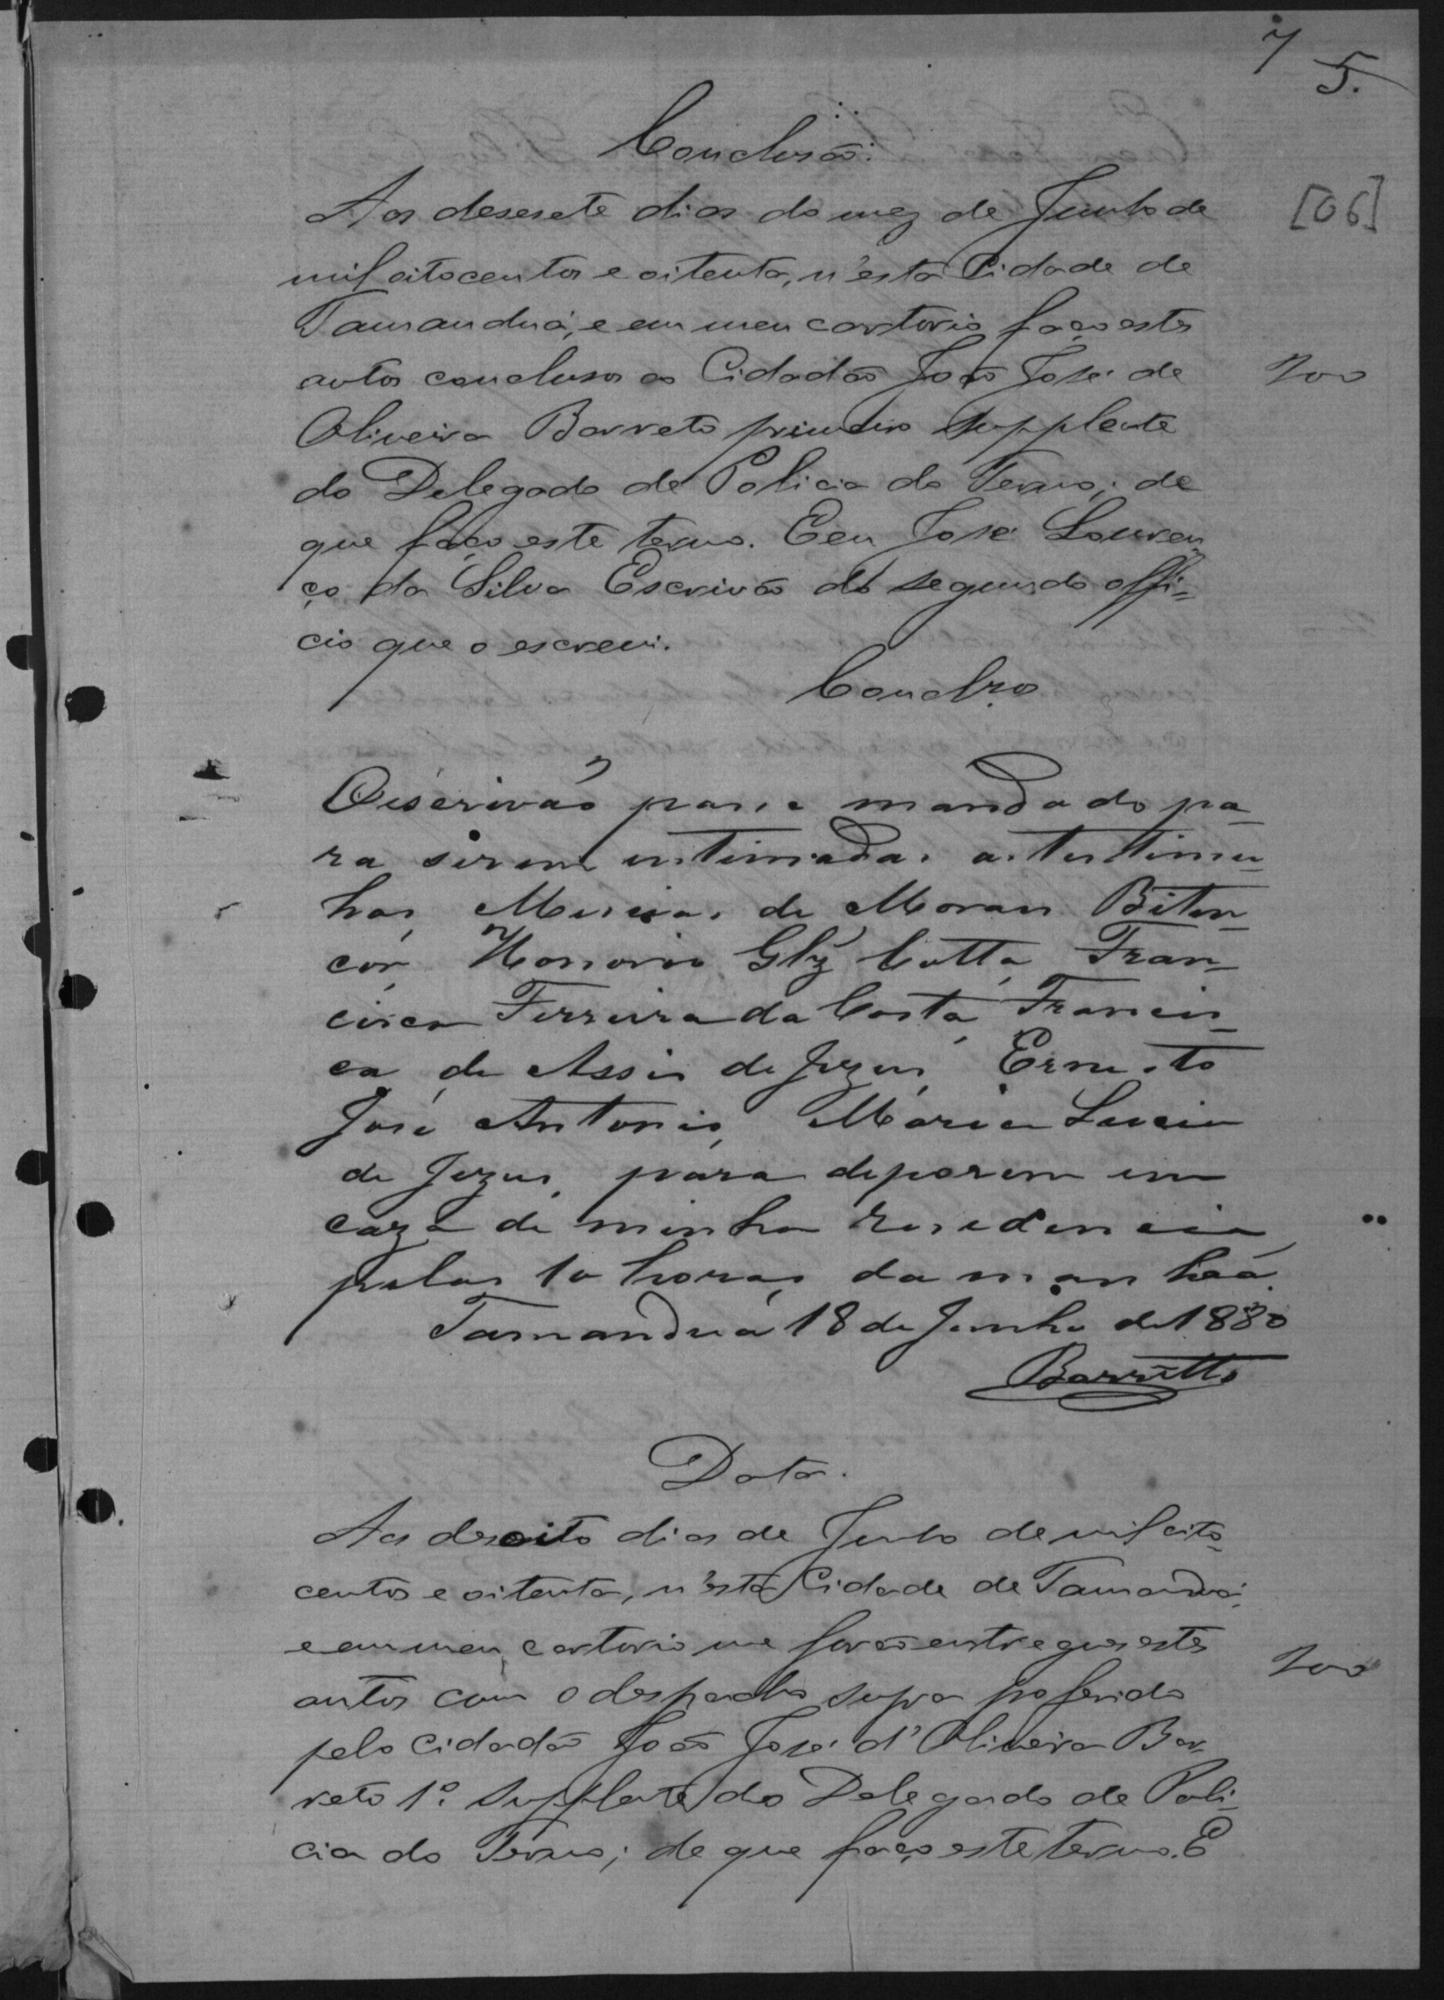 7
5.
Conclusão.
[06]
Aos desesete dias do mez de Junho de
mil oitocentos e oitenta, n'esta Cidade de
Tamanduá, e em meu cartorio faço estes
autos conclusos ao Cidadão João José de
200
Oliveira Barreto primeiro supplente
do Delegado de Policia do Termo; de
que faço este termo. E eu José Louren
ço da Silva Escrivão do segundo offi=
cio que o escrevi.
Conclzo
O escrivão passe mandado pa
ra serem intimadas as testimu
has, Messias de Moraes Biten
cor, Honorio Glz Cotta, Fran
cisca Ferreira da Costa, Francis
ca de Assis de Jezus, Ernesto
José Antonio, Maria Lucia
de Jezus, para deporem em
caza de minha residencia
pelas 10 horas da manhãa.
Tamanduá 18 de Junho de 1880
Barretto
Data.
Aos desoito dias de Junho de mil oito
centos e oitenta, n'esta Cidade de Tamanduá,
e em meu cartorio me forão entregues estes
200
autos com o despacho supra proferido
pelo cidadão João José d'Oliveira Bar
reto 1º supplente do Delegado de Poli
cia do Termo; de que faço este termo. E